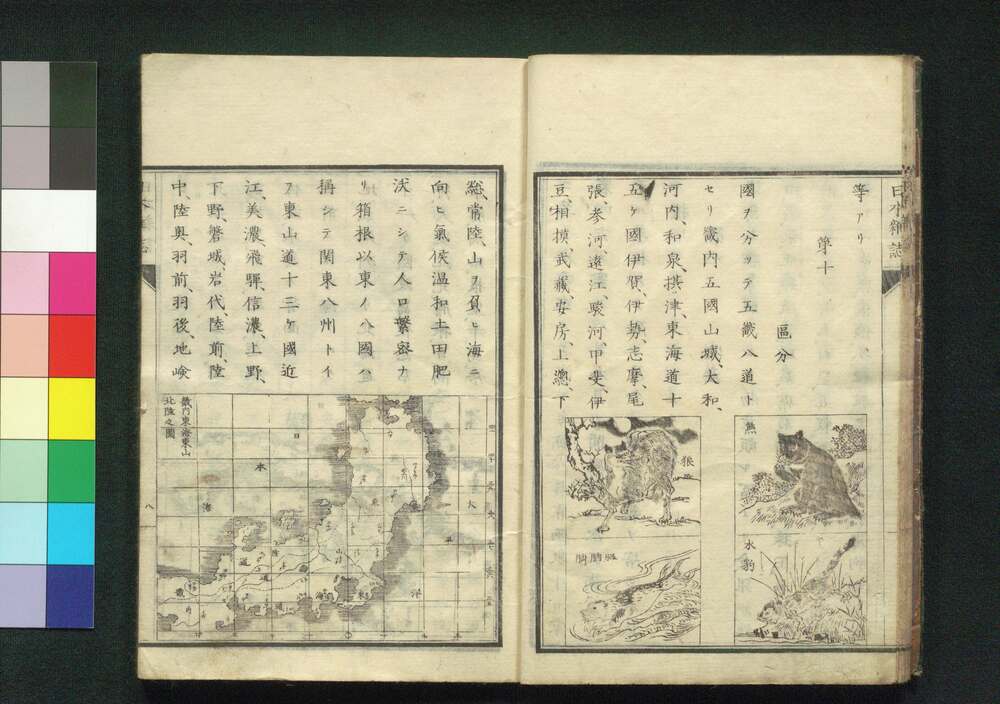 日本雑誌
等アリ
第十
區分
國ヲ分ツテ五畿八道ト
セリ畿内五國山城、大和、
河内、和泉、摂津、東海道十
五ケ國伊賀、伊勢、志摩、尾
張、参河、遠江、駿河、甲斐、伊
豆、相摸、武蔵、安房、上總、下
熊
水豹
狼
膃肭臍
總、常陸、山ヲ負ヒ海ニ
向ヒ氣候温和土田肥
沃ニシテ人口繁密ナ
リ箱根以東ノ八國ハ
稱シテ関東八州トイ
フ東山道十三ケ國近
江、美濃、飛騨、信濃、上野、
下野、磐城、岩代、陸前、陸
中、陸奥、羽前、羽後、地峻
畿内東海東山
北陸之圖
日
本
海
大
洋
八